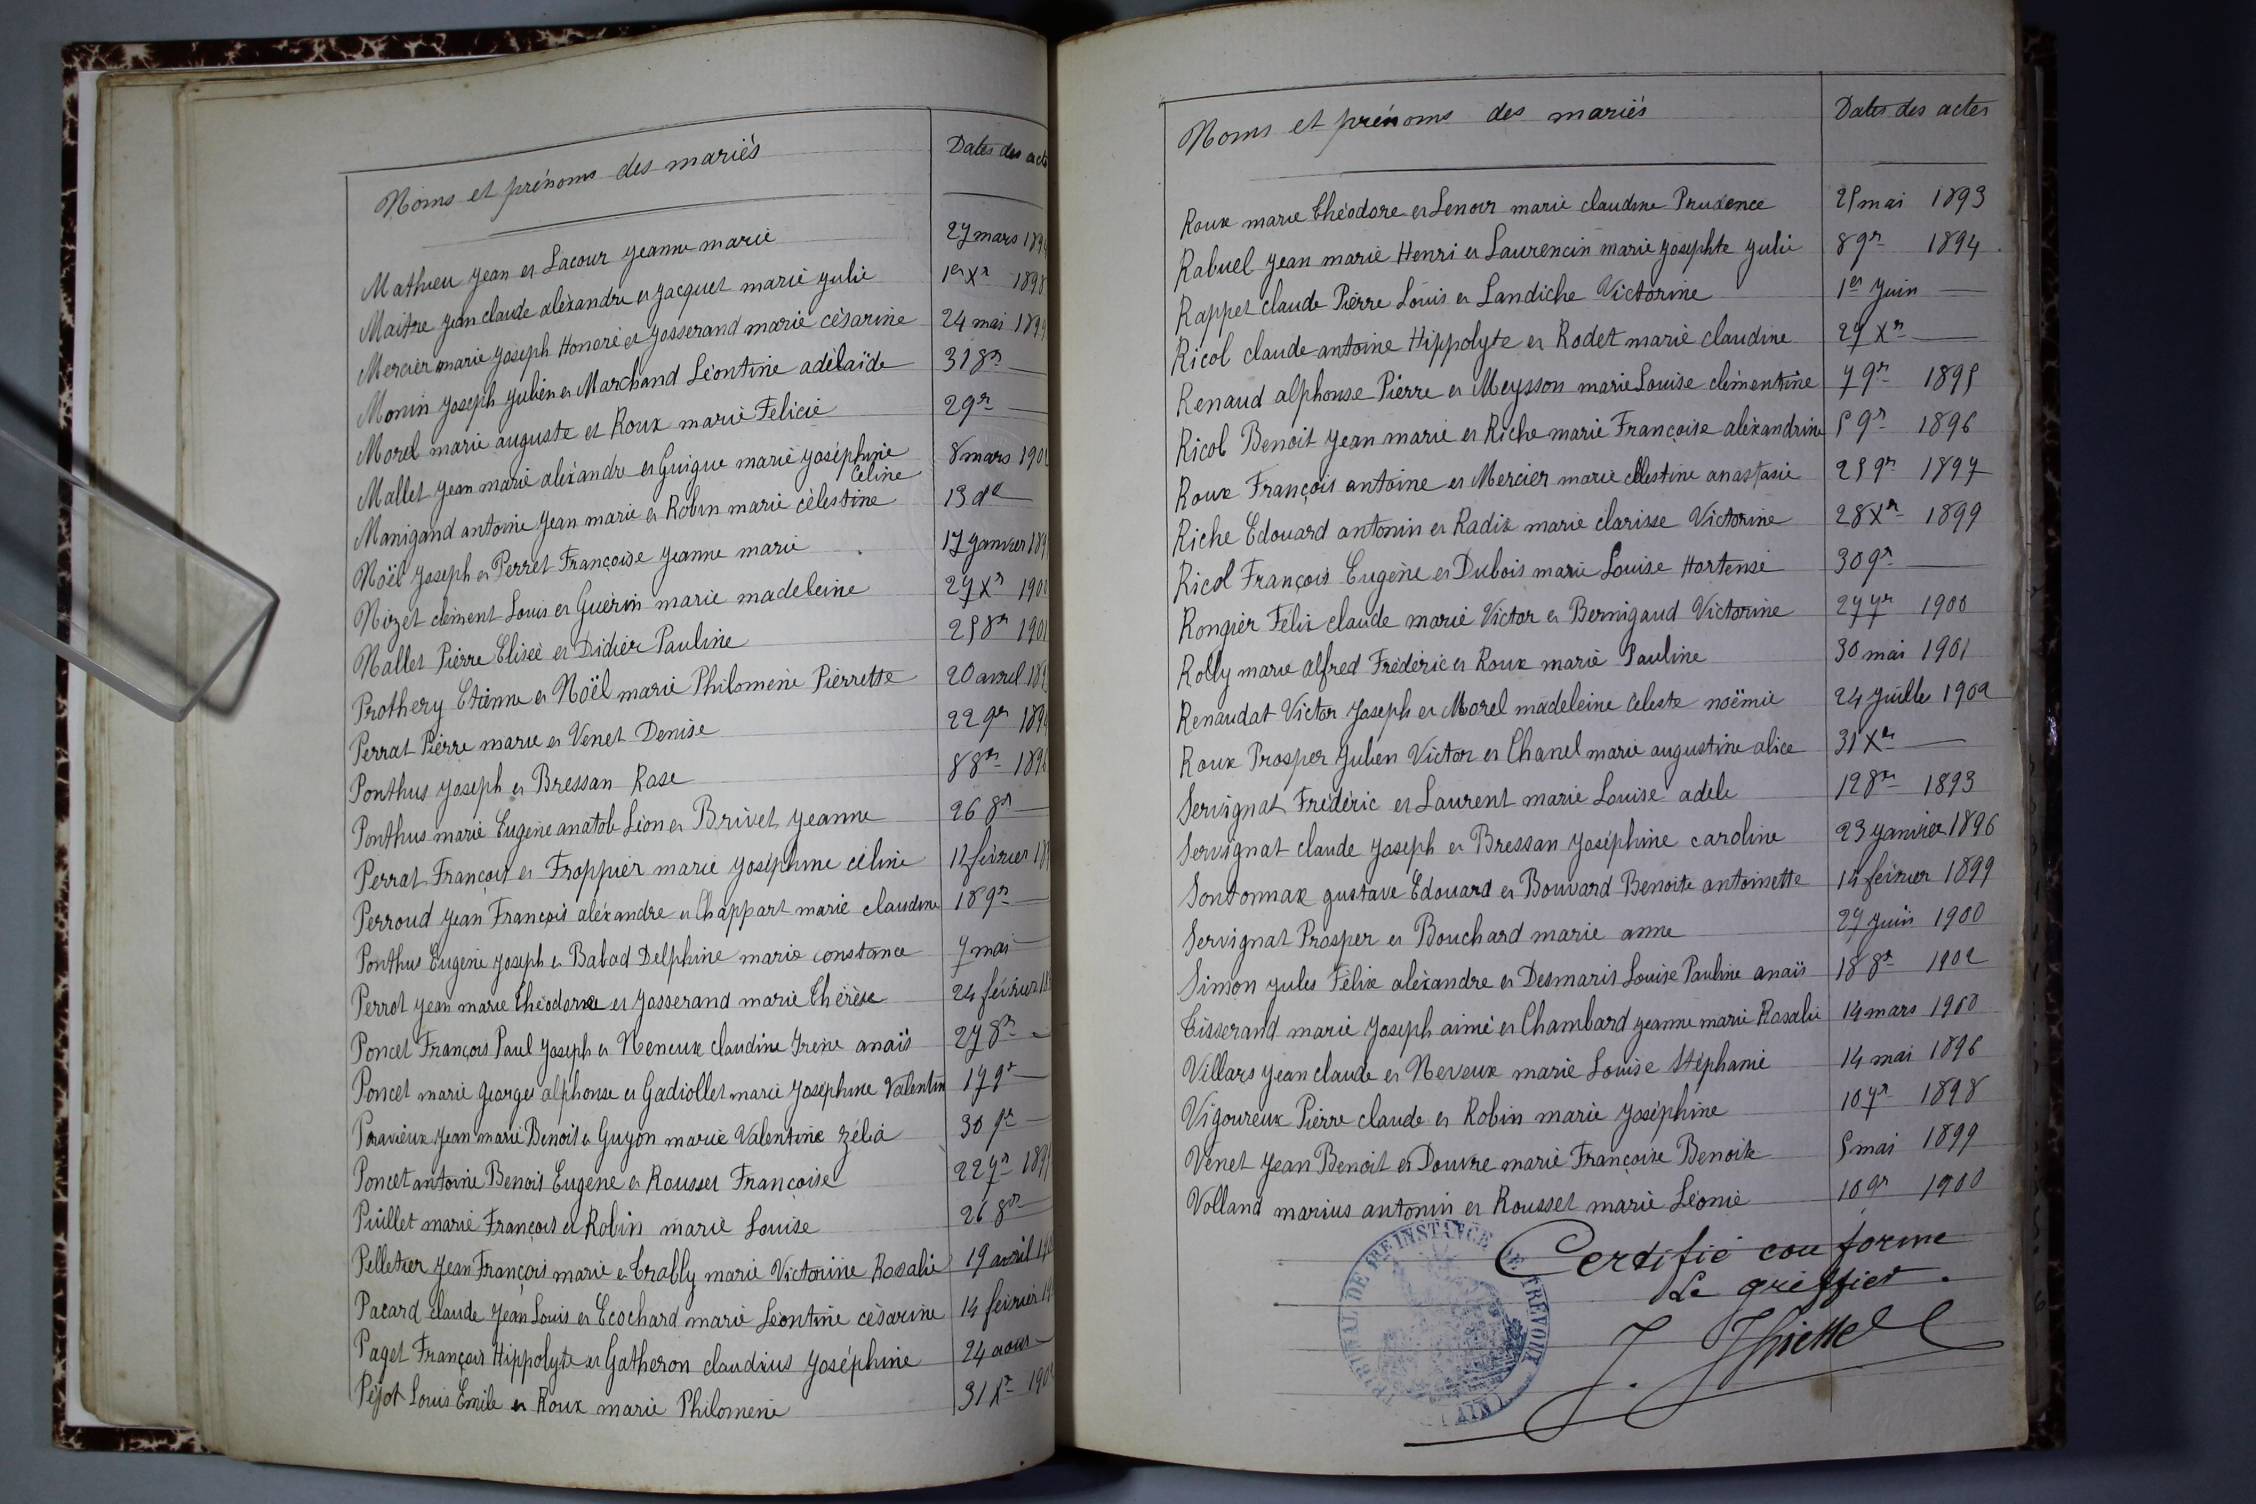 Noms et prénoms des mariés
Dates des acte
Mathieu Jean et Lacour Jeanne marie 27 mars 189
Maitre Jean claude alexandre et Jacquet marie Julie 1er Xr 1898
Mercier marie Joseph Honoré et Josserand marie césarine 24 mai 1899
Monin Joseph Julien et Marchand Léontine adélaïde 31 8r —
Morel marie auguste et Roux marie Félicie 2 9r —
Mallet Jean marie alexandre et Guigue marie Joséphine 8 mars 190
Céline
Manigand antoine Jean marie et Robin marie célestine 13 de —
Noël Joseph et Perret Françoise Jeanne marie 17 Janvier 189
Nizet clément Louis et Guérin marie madeleine 27 Xr 190
Nallet Pierre Elisée et Didier Pauline 25 8r 190
Prothery Etienne et Noël marie Philomène Pierrette 20 avril 189
Perrat Pierre marie et Venet Denise 22 9r 189
Ponthus Joseph et Bressan Rose 8 8r 189
Ponthus marie Eugène anatole Léon et Brivet Jeanne 26 8r —
Perrat François et Froppier marie Joséphine céline 12 février 18
Perroud Jean François alexandre et Chappart marie claudine 18 9r —
Ponthus Eugène Joseph et Babad Delphine marie constance 7 mai —
Perrot Jean marie Théodore et Josserand marie Thérèse 24 février 18
Poncet François Paul Joseph et Neneux claudine Irène anaïs 27 8r —
Poncet marie Georges alphonse et Gadiollet marie Joséphine Valentin 17 9r —
Paravieux Jean marie Benoit et Guyon marie Valentine Zélia 30 9r —
Poncet antoine Benoit Eugène et Rousset Françoise 22 7r 189
Puillet marie François et Robin marie Louise 26 8r —
Pelletier Jean François marie et Trably marie Victorine Rosalie 19 avril 190
Pacard claude Jean Louis et Ecochard marie Léontine césarine 14 février 19
Paget François Hippolyte et Gatheron claudius Joséphine 24 aout —
Péjot Louis Emile et Roux marie Philomène 31 Xr 190
Noms et prénoms des mariés
Dates des actes
Roux marie Théodore et Lenoir marie claudine Prudence 25 mai 1893
Rabuel Jean marie Henri et Laurencin marie Josephte Julie 8 9r 1894
Rappet claude Pierre Louis et Landiche Victorine 1er Juin —
Ricol claude antoine Hippolyte et Rodet marie claudine 27 Xr —
Renaud alphonse Pierre et Meysson marie Louise clémentine 7 9r 1895
Ricol Benoit Jean marie et Riche marie Françoise alexandrine 5 9r 1896
Roux François antoine et Mercier marie célestine anastasie 25 9r 1897
Riche Edouard antonin et Radix marie clarisse Victorine 28 Xr 1899
Ricol François Eugène et Dubois marie Louise Hortense 30 9r —
Rongier Félix claude marie Victor et Bernigaud Victorine 27 7r 1900
Rolly marie alfred Frédéric et Roux marie Pauline 30 mai 1901
Renaudat Victor Joseph et Morel madeleine céleste noëmie 24 Juillet 1902
Roux Prosper Julien Victor et Chanel marie augustine alice 31 Xr —
Servignat Frédéric et Laurent marie Louise adèle 12 8r 1893
Servignat claude Joseph et Bressan Joséphine caroline 23 Janvier 1896
Sontonnax gustave Edouard et Bouvard Benoite antoinette 14 février 1899
Servignat Prosper et Bouchard marie anne 27 Juin 1900
Simon Jules Félix alexandre et Desmaris Louise Pauline anaïs 18 8r 1902
Tisserand marie Joseph aimé et Chambard Jeanne marie Rosalie 14 mars 1900
Villars Jean claude et Neveux marie Louise Stéphanie 14 mai 1896
Vigoureux Pierre claude et Robin marie Joséphine 10 7r 1898
Venet Jean Benoit et Douvre marie Françoise Benoite 5 mai 1899
Volland marius antonin et Rousset marie Léonie 10 9r 1900
Certifié conforme
Le greffier.
TRIBUNAL DE 1RE INSTANCE DE TREVOUX